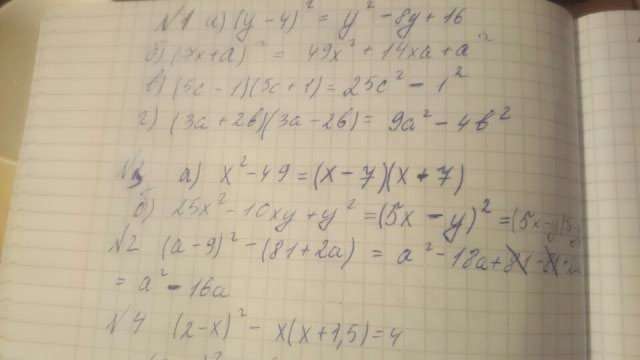 №1 а) (y-4)² = y² - 8y + 16
б) (7x+a)² = 49x² + 14xa + a²
в) (5c-1)(5c+1) = 25c² - 1²
г) (3a+2b)(3a-2b) = 9a² - 4b²
№3 а) x² - 49 = (x-7)(x+7)
б) 25x² - 10xy + y² = (5x-y)² = (5x-y)(5
№2 (a-9)² - (81+2a) = a² - 18a + 81 - 81
= a² - 16a
№4 (2-x)² - x(x+1,5) = 4